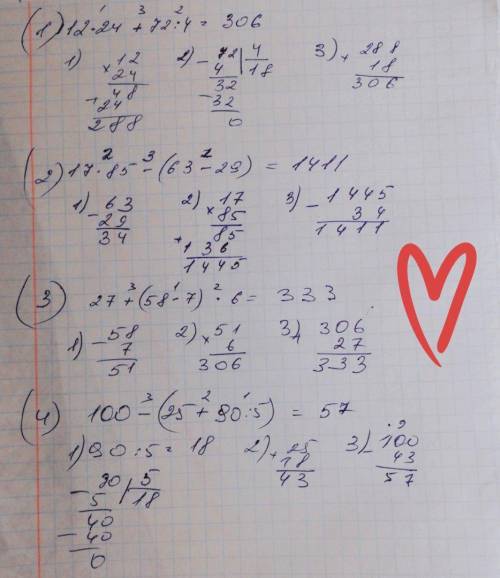 (1) 12·24 + 72:4 = 306
1) × 12 24 48 + 24 288
2) - 72 | 4 4 18 32 - 32 0
3) + 288 18 306
(2) 17·85 - (63 - 29) = 1411
1) - 63 29 34
2) × 17 85 85 + 136 1445
3) - 1445 34 1411
(3) 27 + (58 - 7) · 6 = 333
1) - 58 7 51
2) × 51 6 306
3) + 306 27 333
(4) 100 - (25 + 90:5) = 57
1) 90:5 = 18
- 90 | 5 5 18 40 - 40 0
2) + 25 18 43
3) - 100 43 57